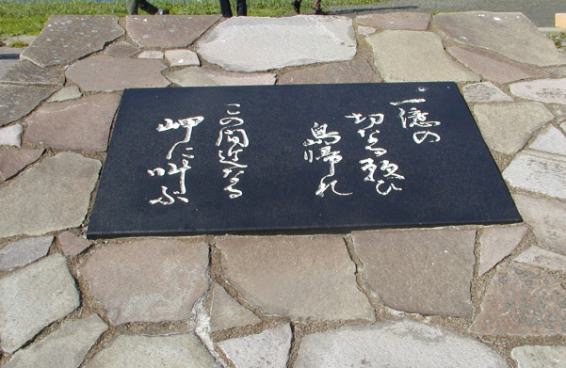 一億の
切なる願ひ
島帰れ
この間近なる
岬に叫ぶ